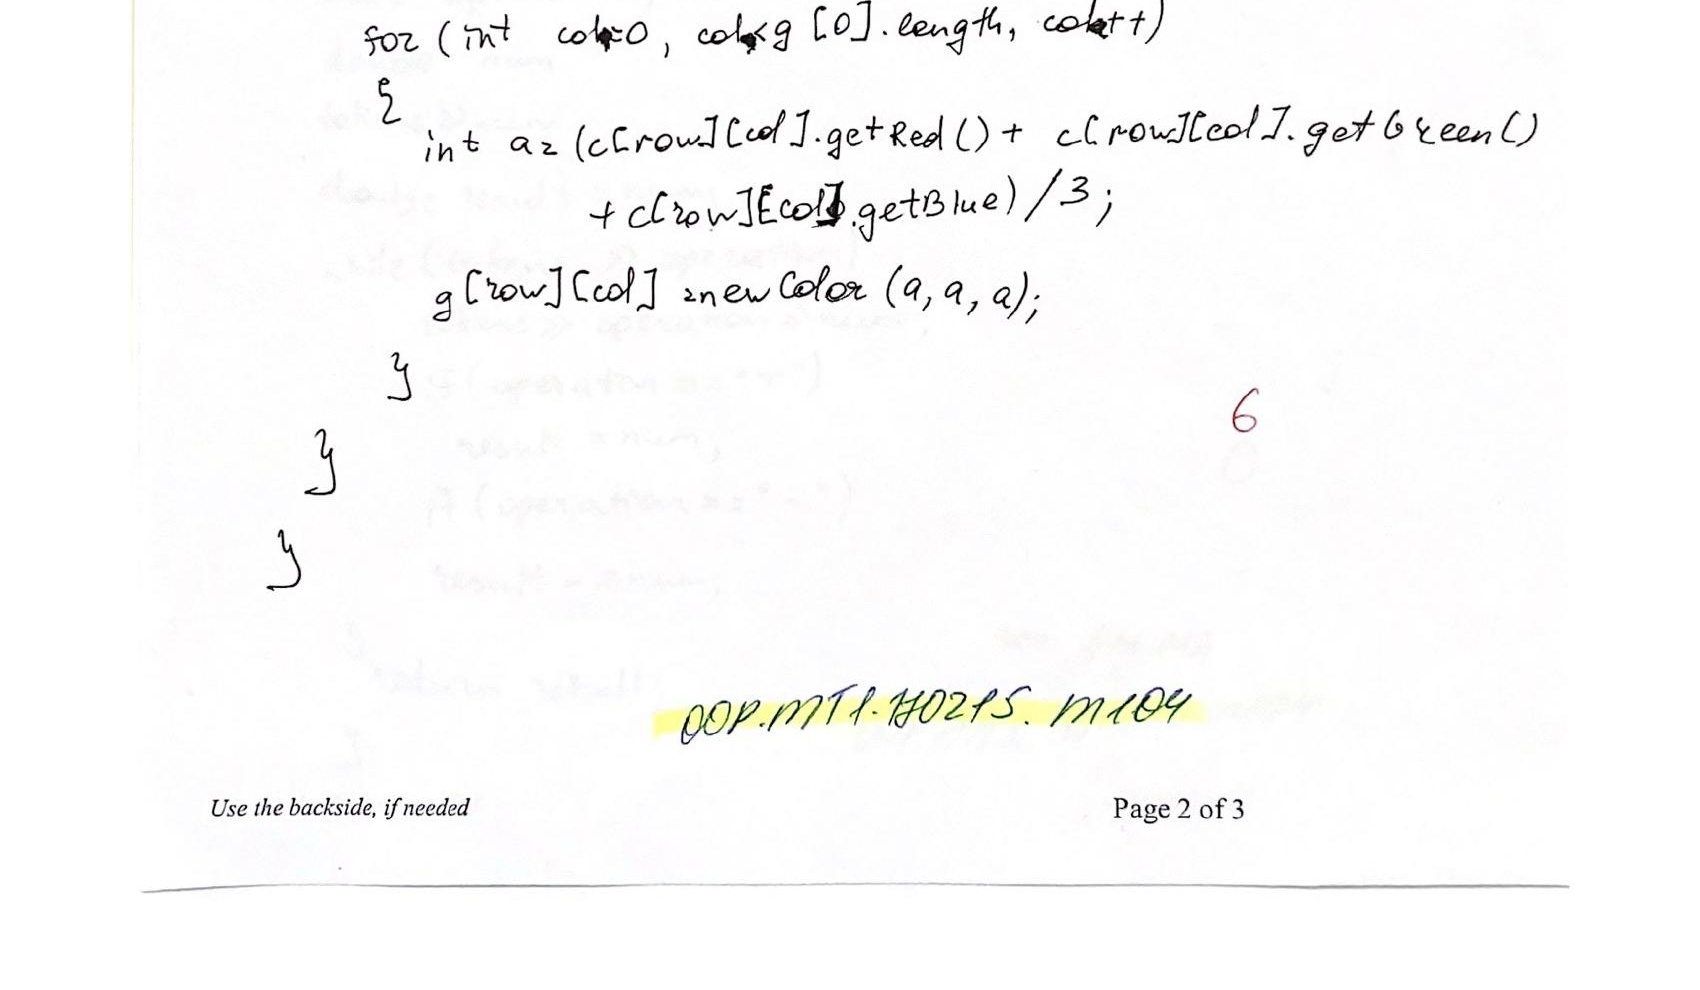 for (int col=0, col<g [0].length, col++)
{
int a = (c[row][col].getRed() + c[row][col].getGreen()
+ c[row][col].getBlue) /3;
g[row][col] = new Color (a, a, a);
}
6
}
}
OOP.MT1.170215.M104
Use the backside, if needed
Page 2 of 3